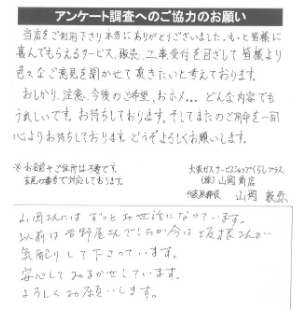 アンケート調査へのご協力のお願い
当店をご利用下さり本当にありがとうございました。もっと皆様に
喜んでもらえるサービス、販売、工事受付を目ざして皆様より
色々なご意見を聞かせて頂きたいと考えております。
おしかり、注意、今後のご希望、おホメ...どんな内容でも
うれしいです。お待ちしております。そしてまたのご用命を一同
心よりお待ちしております。どうぞよろしくお願いします。
※お名前やご住所は不要です。
大阪ガスサービスショップくらしプラス
(株)山岡商店
代表取締役 山岡
山岡さんにはずっとお世話になっています。
以前は吉野屋さんでしたが今は坂根さんが
気配りして下さっています。
安心しておまかせしています。
よろしくお願いします。